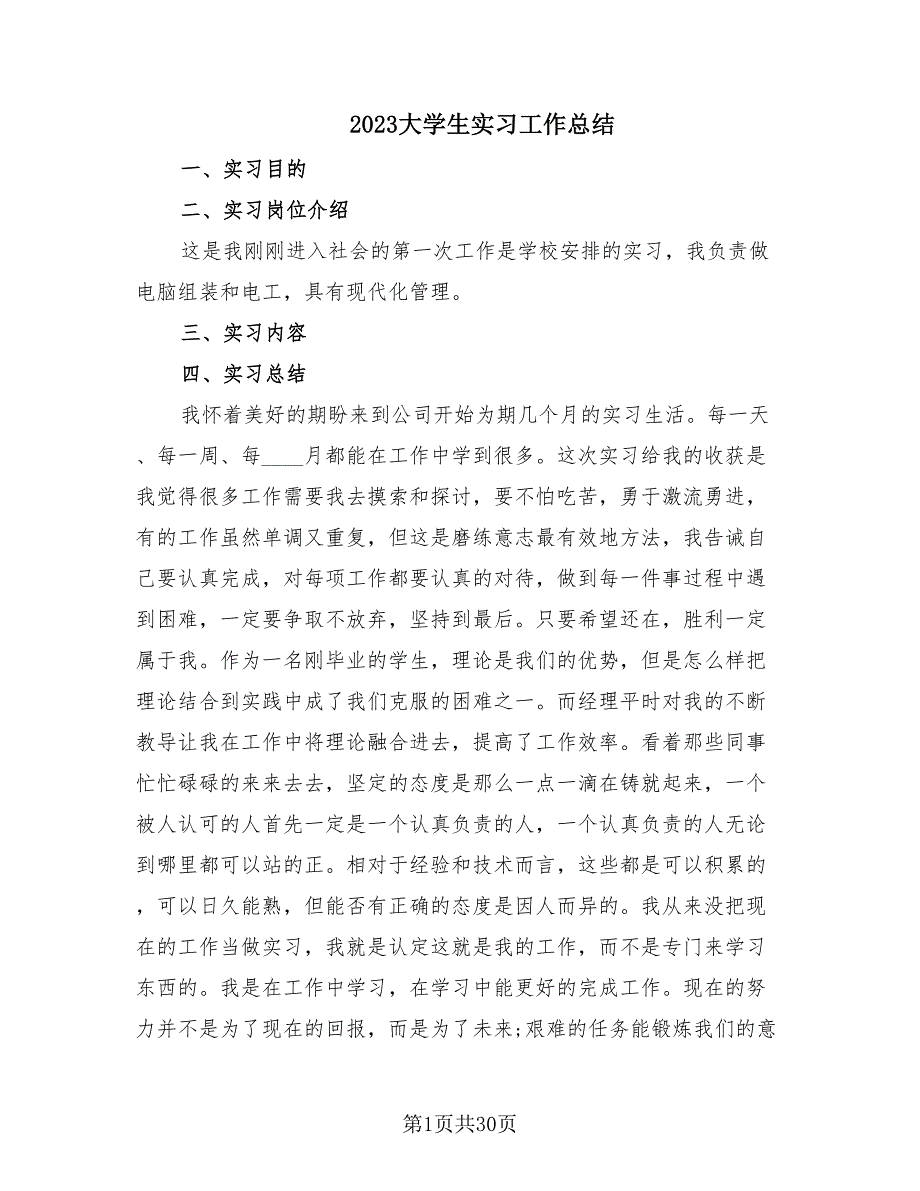 2023大学生实习工作总结
一、实习目的
二、实习岗位介绍
这是我刚刚进入社会的第一次工作是学校安排的实习，我负责做
电脑组装和电工，具有现代化管理。
三、实习内容
四、实习总结
我怀着美好的期盼来到公司开始为期几个月的实习生活。每一天
、每一周、每____月都能在工作中学到很多。这次实习给我的收获是
我觉得很多工作需要我去摸索和探讨，要不怕吃苦，勇于激流勇进，
有的工作虽然单调又重复，但这是磨练意志最有效地方法，我告诫自
己要认真完成，对每项工作都要认真的对待，做到每一件事过程中遇
到困难，一定要争取不放弃，坚持到最后。只要希望还在，胜利一定
属于我。作为一名刚毕业的学生，理论是我们的优势，但是怎么样把
理论结合到实践中成了我们克服的困难之一。而经理平时对我的不断
教导让我在工作中将理论融合进去，提高了工作效率。看着那些同事
忙忙碌碌的来来去去，坚定的态度是那么一点一滴在铸就起来，一个
被人认可的人首先一定是一个认真负责的人，一个认真负责的人无论
到哪里都可以站的正。相对于经验和技术而言，这些都是可以积累的
，可以日久能熟，但能否有正确的态度是因人而异的。我从来没把现
在的工作当做实习，我就是认定这就是我的工作，而不是专门来学习
东西的。我是在工作中学习，在学习中能更好的完成工作。现在的努
力并不是为了现在的回报，而是为了未来;艰难的任务能锻炼我们的意
第1页共30页